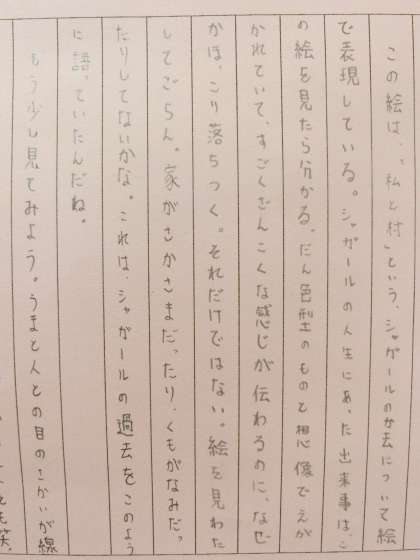 この絵は、「私と村」という、シャガールの過去について絵
で表現している。シャガールの人生にあった出来事は、こ
の絵を見たら分かる。だん色型のものと想像でえが
かれていて、すごくざんこくな感じが伝わるのに、なぜ
かほっこり落ちつく。それだけではない。絵を見わた
してごらん。家がさかさまだったり、くもがなみだっ
たりしてないかな。これは、シャガールの過去をこのよう
に語っていたんだね。
もう少し見てみよう。うまと人との目のさかいが線
も笑、